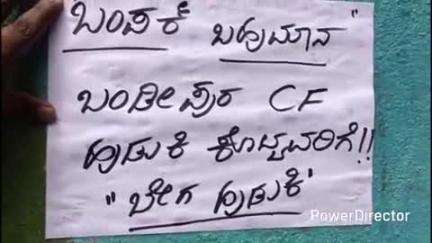 ಬಂಪರ್ ಬಹುಮಾನ"
ಬಂಡೀಪುರ CF
ಹುಡುಕಿ ಕೊಟ್ಟವರಿಗೆ!!
"ಬೇಗ ಹುಡುಕಿ"
PowerDirector